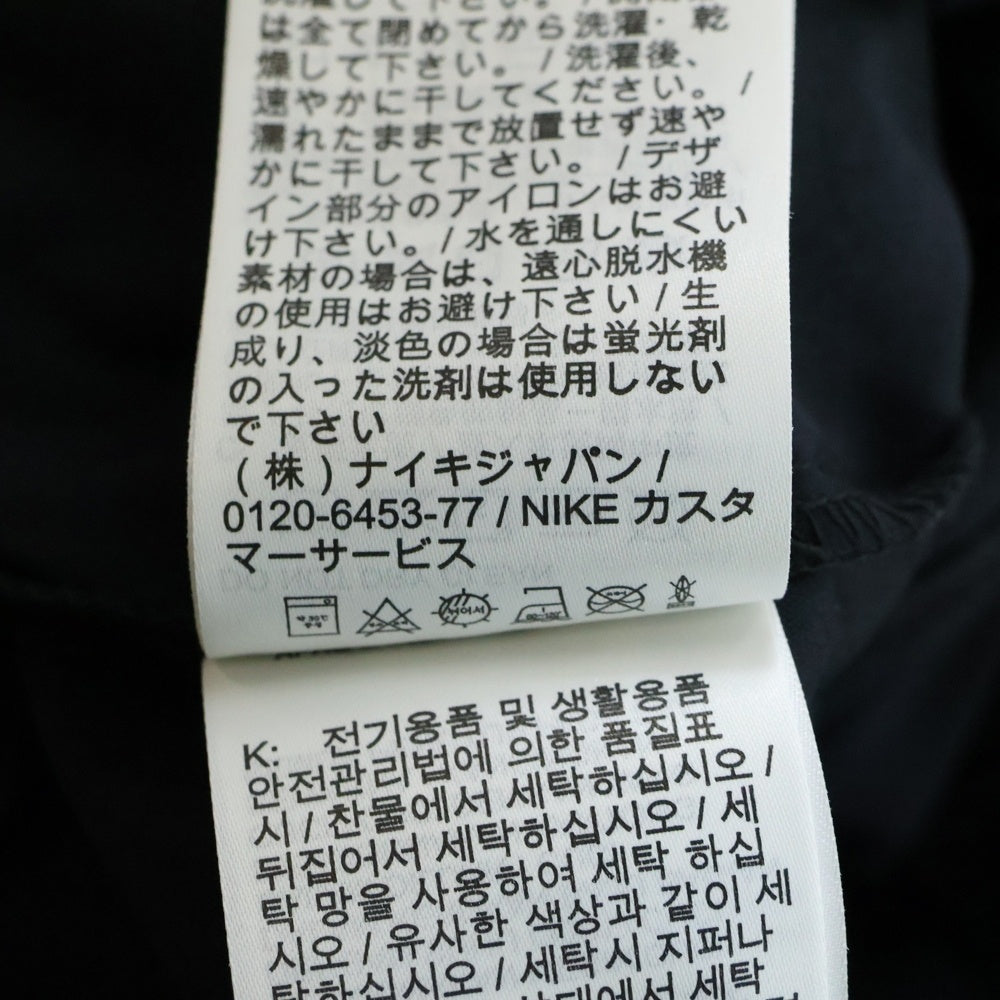 は全て閉めてから洗濯・乾
燥して下さい。/ 洗濯後、
速やかに干してください。 /
濡れたままで放置せず速や
かに干して下さい。 / デザ
イン部分のアイロンはお避
け下さい。/ 水を通しにくい
素材の場合は、遠心脱水機
の使用はお避け下さい / 生
成り、淡色の場合は蛍光剤
の入った洗剤は使用しない
で下さい
( 株 ) ナイキジャパン /
0120-6453-77 / NIKE カスタ
マーサービス
K: 전기용품 및 생활용품
안전관리법에 의한 품질표
시 / 찬물에서 세탁하십시오 /
뒤집어서 세탁하십시오 / 세
탁 망을 사용하여 세탁 하십
시오 / 유사한 색상과 같이 세
탁하십시오 / 세탁시 지퍼나
상태에서 세탁